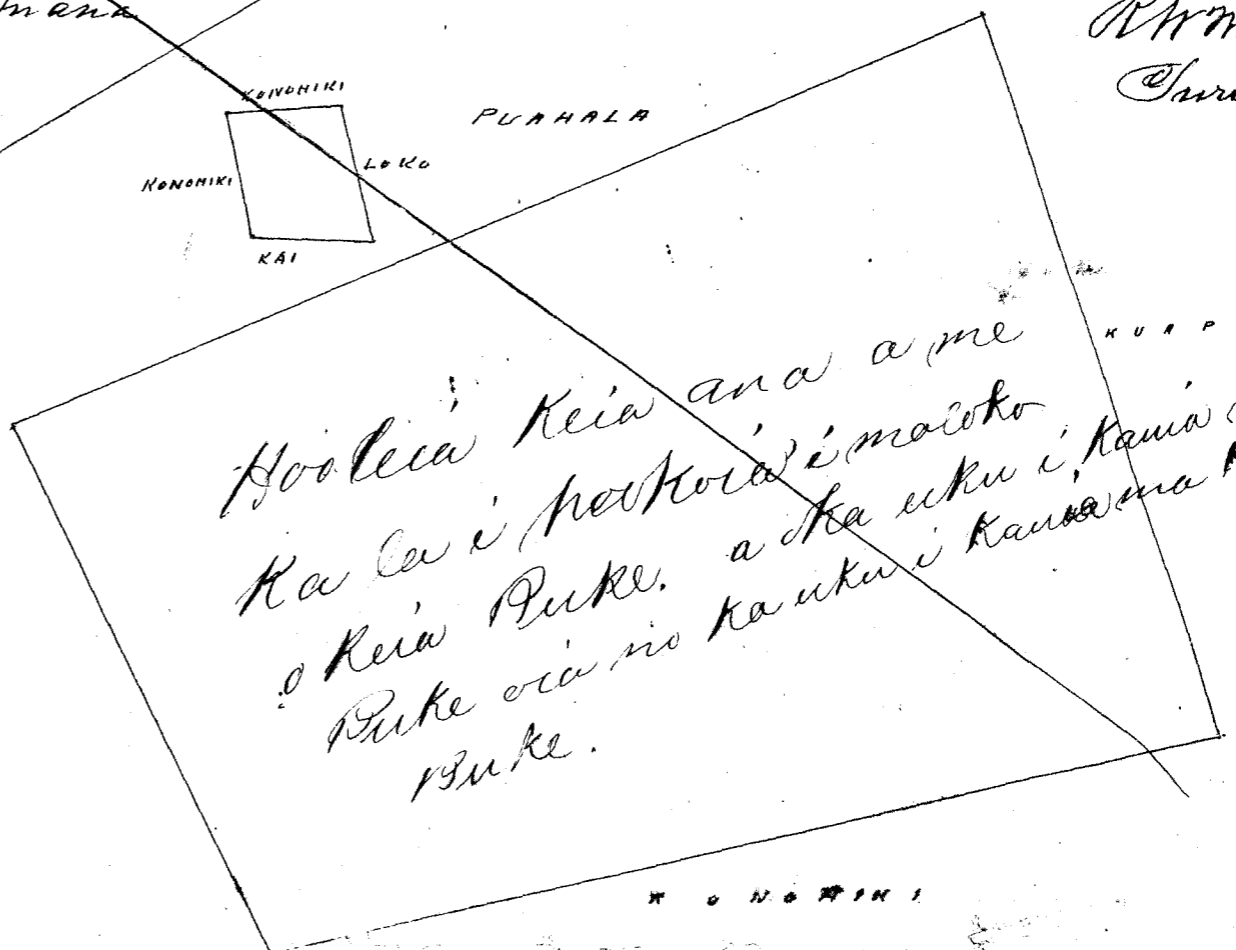 KONOHIKI
PUAHALA
LOKO
KONOHIKI
KAI
Hooleia Keia ana a me
Ka la i hookoia i maloko
o Keia Buke. a o Ka uku i Kauia
Buke oia no Ka uku i Kauia ma
Buke.
KONOHIKI